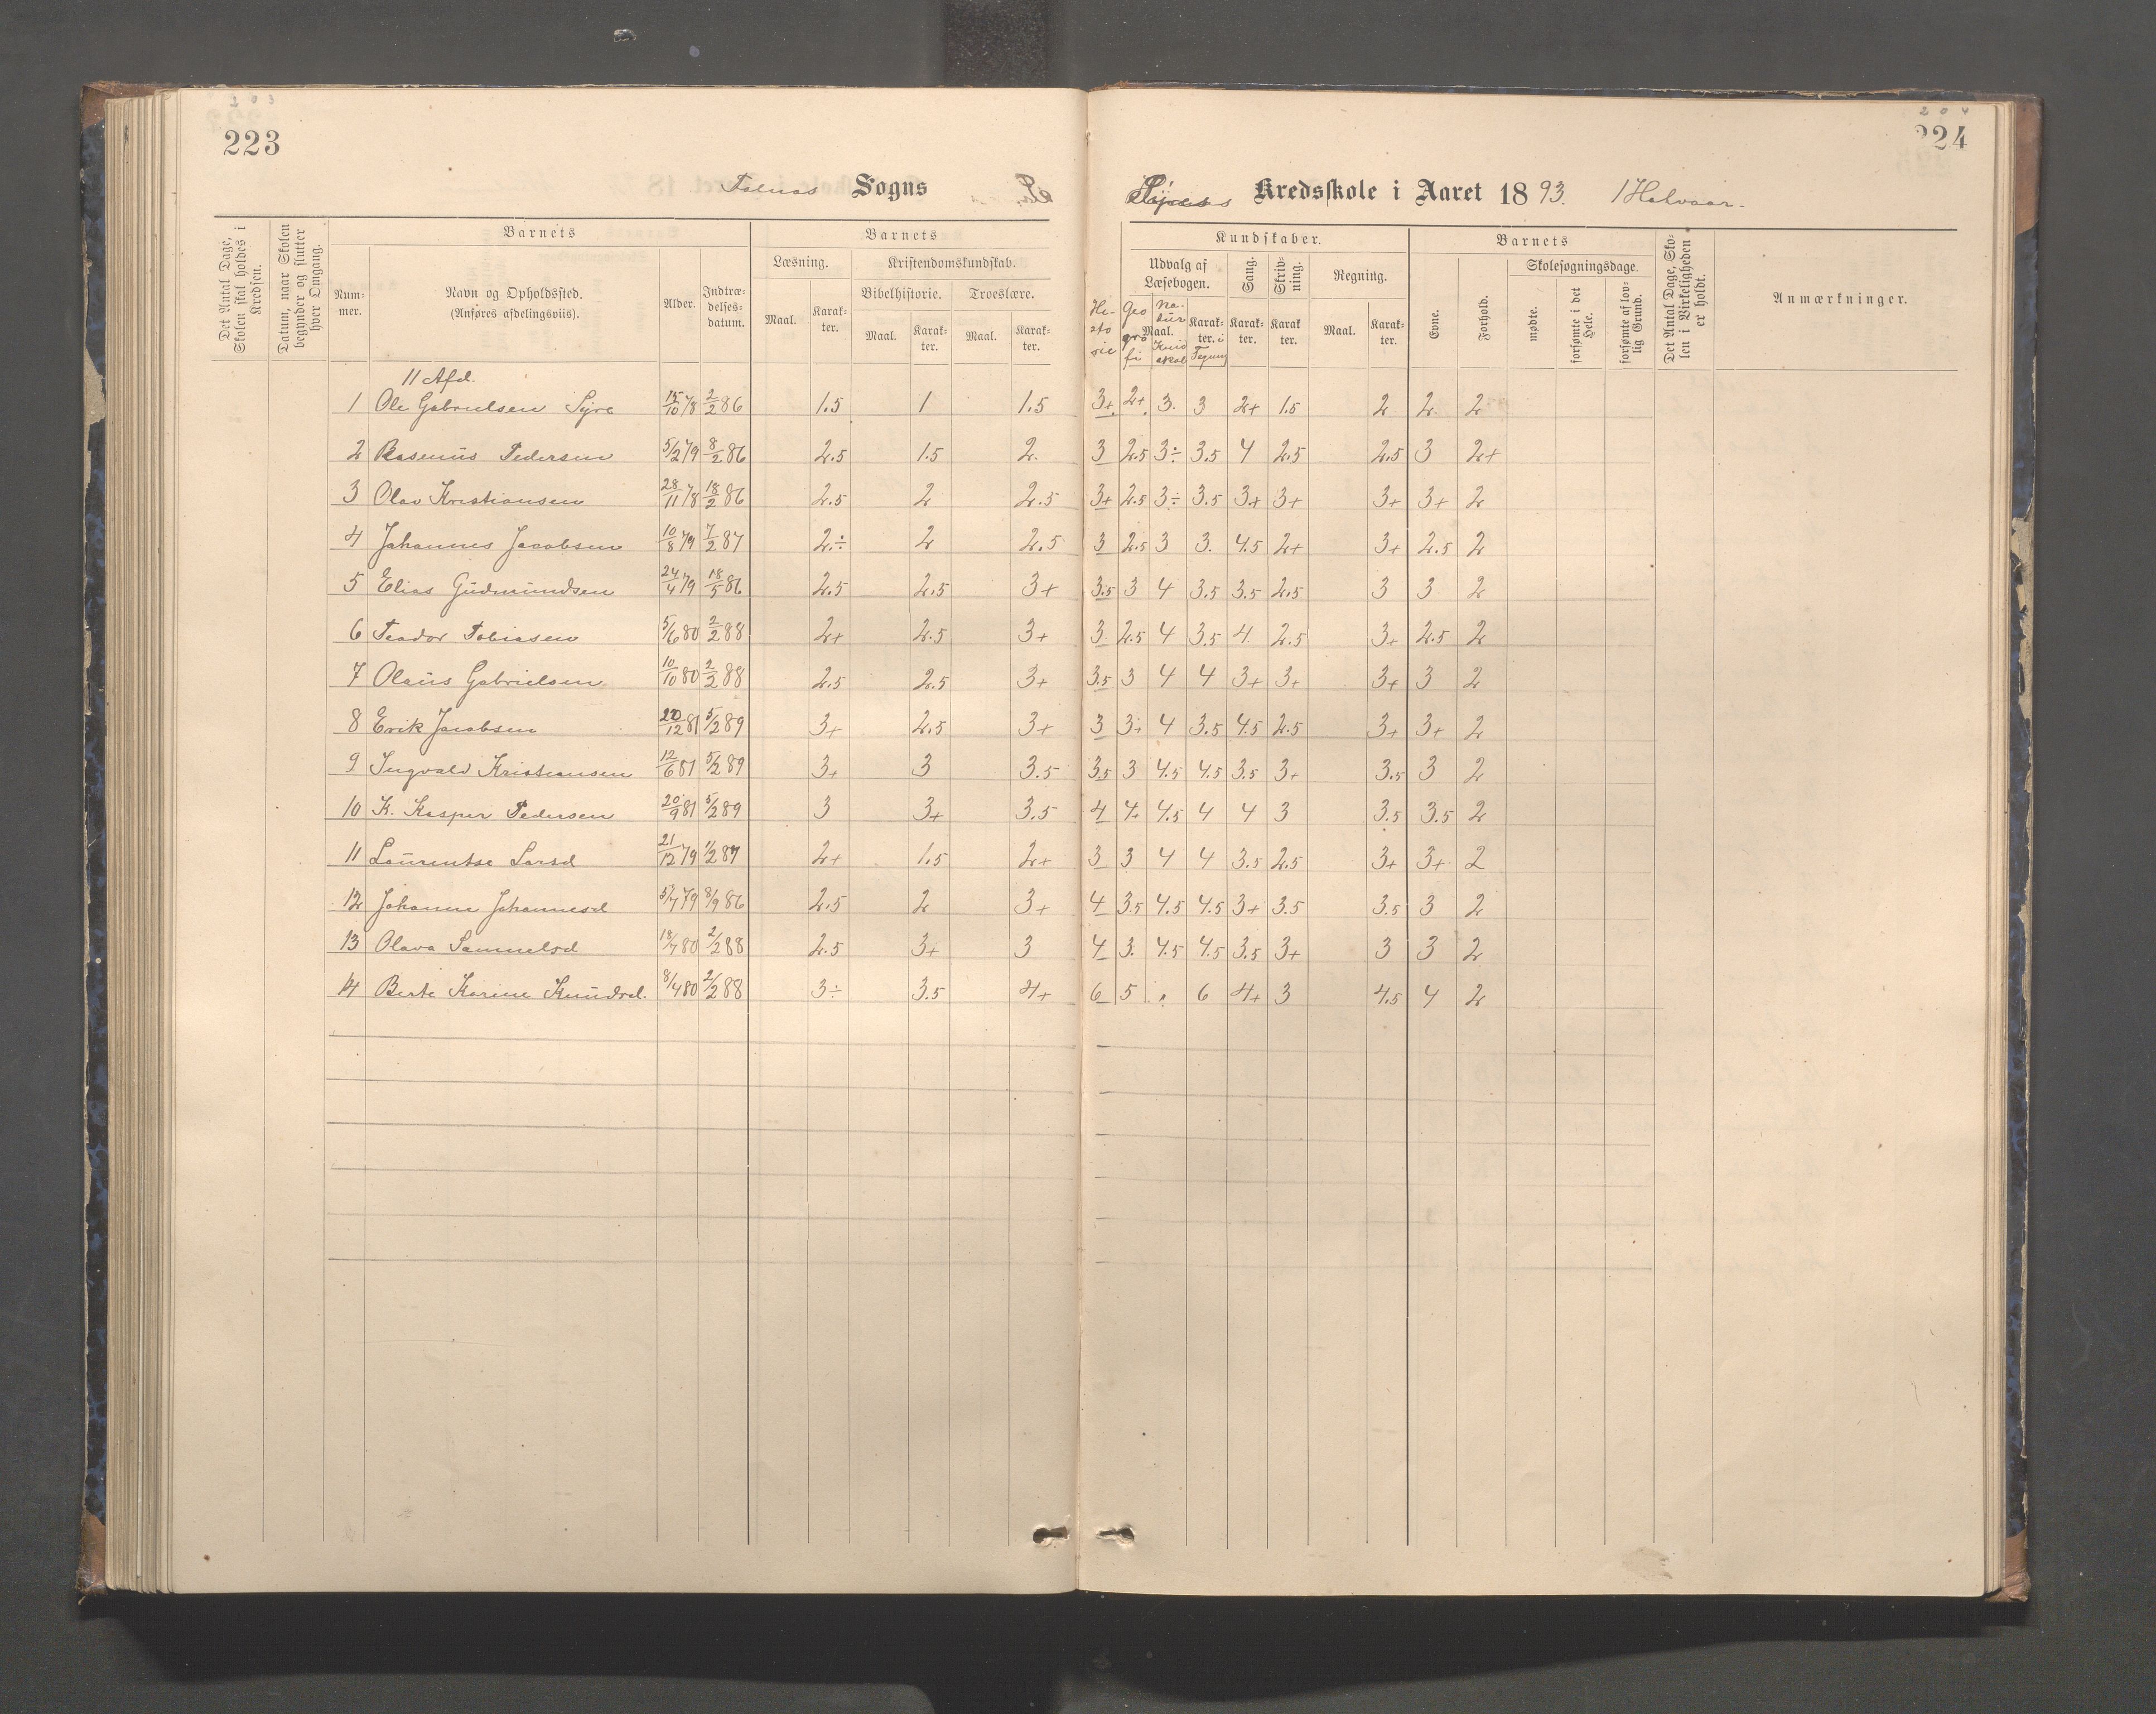 223
204
224
Falnæs Sogns
Kredsskole i Aaret 1893. 1 Halvaar.
Det Antal Dage, Skolen skal holdes i Kredsen.
Datum, naar Skolen begynder og slutter hver Omgang.
Barnets
Num-mer.
Navn og Opholdssted.
(Anføres afdelingsviis).
Alder.
Indtræ-delses-datum.
Barnets
Læsning.
Maal.
Karak-ter.
Kristendomskundskab.
Bibelhistorie.
Maal.
Karak-ter.
Troeslære.
Maal.
Karak-ter.
Kundskaber.
Udvalg af Læsebogen.
Maal.
Hi-sto-rie
Geo gra fi
Na-tur
Karak-ter. i Tegning
Sang.
Karak-ter.
Skriv-ning.
Karak ter.
Regning.
Maal.
Karak-ter.
Barnets
Evne.
Forhold.
Skolesøgningsdage.
mødte.
forsømte i det Hele.
forsømte af lov-lig Grund.
Det Antal Dage, Sko-len i Virkeligheden er holdt.
Anmærkninger.
11 Afd.
1 Ole Gabrielsen Syre 15/10 78 2/2 86 1.5 1 1.5 3+ 2+ 3. 3 2+ 1.5 2 2 2
2 Rasmus Pedersen 5/2 79 8/2 86 2.5 1.5 2. 3 2.5 3÷ 3.5 4 2.5 2.5 3 2+
3 Olav Kristiansen 28/11 78 18/2 86 2.5 2 2.5 3+ 2.5 3÷ 3.5 3+ 3+ 3+ 3+ 2
4 Johannes Jacobsen 10/8 79 7/2 87 2.÷ 2 2.5 3 2.5 3 3. 4.5 2+ 3+ 2.5 2
5 Elias Gudmundsen 24/4 79 18/5 86 2.5 2.5 3+ 3.5 3 4 3.5 3.5 2.5 3 3 2
6 Teodor Tobiasen 5/6 80 2/2 88 2+ 2.5 3+ 3 2.5 4 3.5 4 2.5 3+ 2.5 2
7 Olaus Gabrielsen 10/10 80 2/2 88 2.5 2.5 3+ 3.5 3 4 4 3+ 3+ 3+ 3 2
8 Erik Jacobsen 20/12 81 5/2 89 3+ 2.5 3+ 3 3+ 4 3.5 4.5 2.5 3+ 3+ 2
9 Ingvald Kristiansen 12/6 81 5/2 89 3+ 3 3.5 3.5 3 4.5 4.5 3.5 3+ 3.5 3 2
10 K. Kasper Pedersen 20/9 81 5/2 89 3 3+ 3.5 4 4+ 4.5 4 4 3 3.5 3.5 2
11 Laurentse Larsd 21/12 79 1/2 87 2+ 1.5 2+ 3 3 4 4 3.5 2.5 3+ 3+ 2
12 Johanne Johannesd 5/7 79 8/9 86 2.5 2 3+ 4 3.5 4.5 4.5 3+ 3.5 3.5 3 2
13 Olava Samuelsd 18/7 80 2/2 88 2.5 3+ 3 4 3. 4.5 4.5 3.5 3+ 3 3 2
14 Berte Karine Knudsd. 8/4 80 2/2 88 3÷ 3.5 4+ 6 5 . 6 4+ 3 4.5 4 2